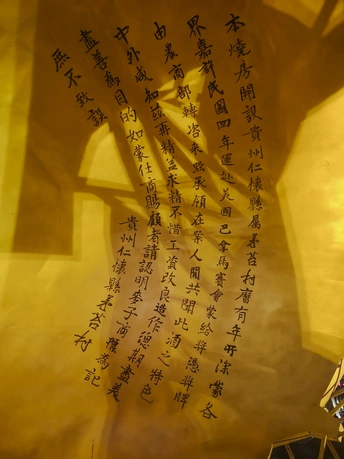 本燒房開設貴州仁懷縣屬茅苔村歷有年所深蒙各
界嘉許民國四年運赴美國巴拿馬賽會蒙給獎憑獎牌
由農商部轉咨來黔承領在案人間共聞此酒之特色
中外咸知茲再精益求精不惜工資改良造作總期盡美
盡善為目的如蒙仕商賜顧者請認明麥子商標為記
無不致誤
貴州仁懷縣茅苔村